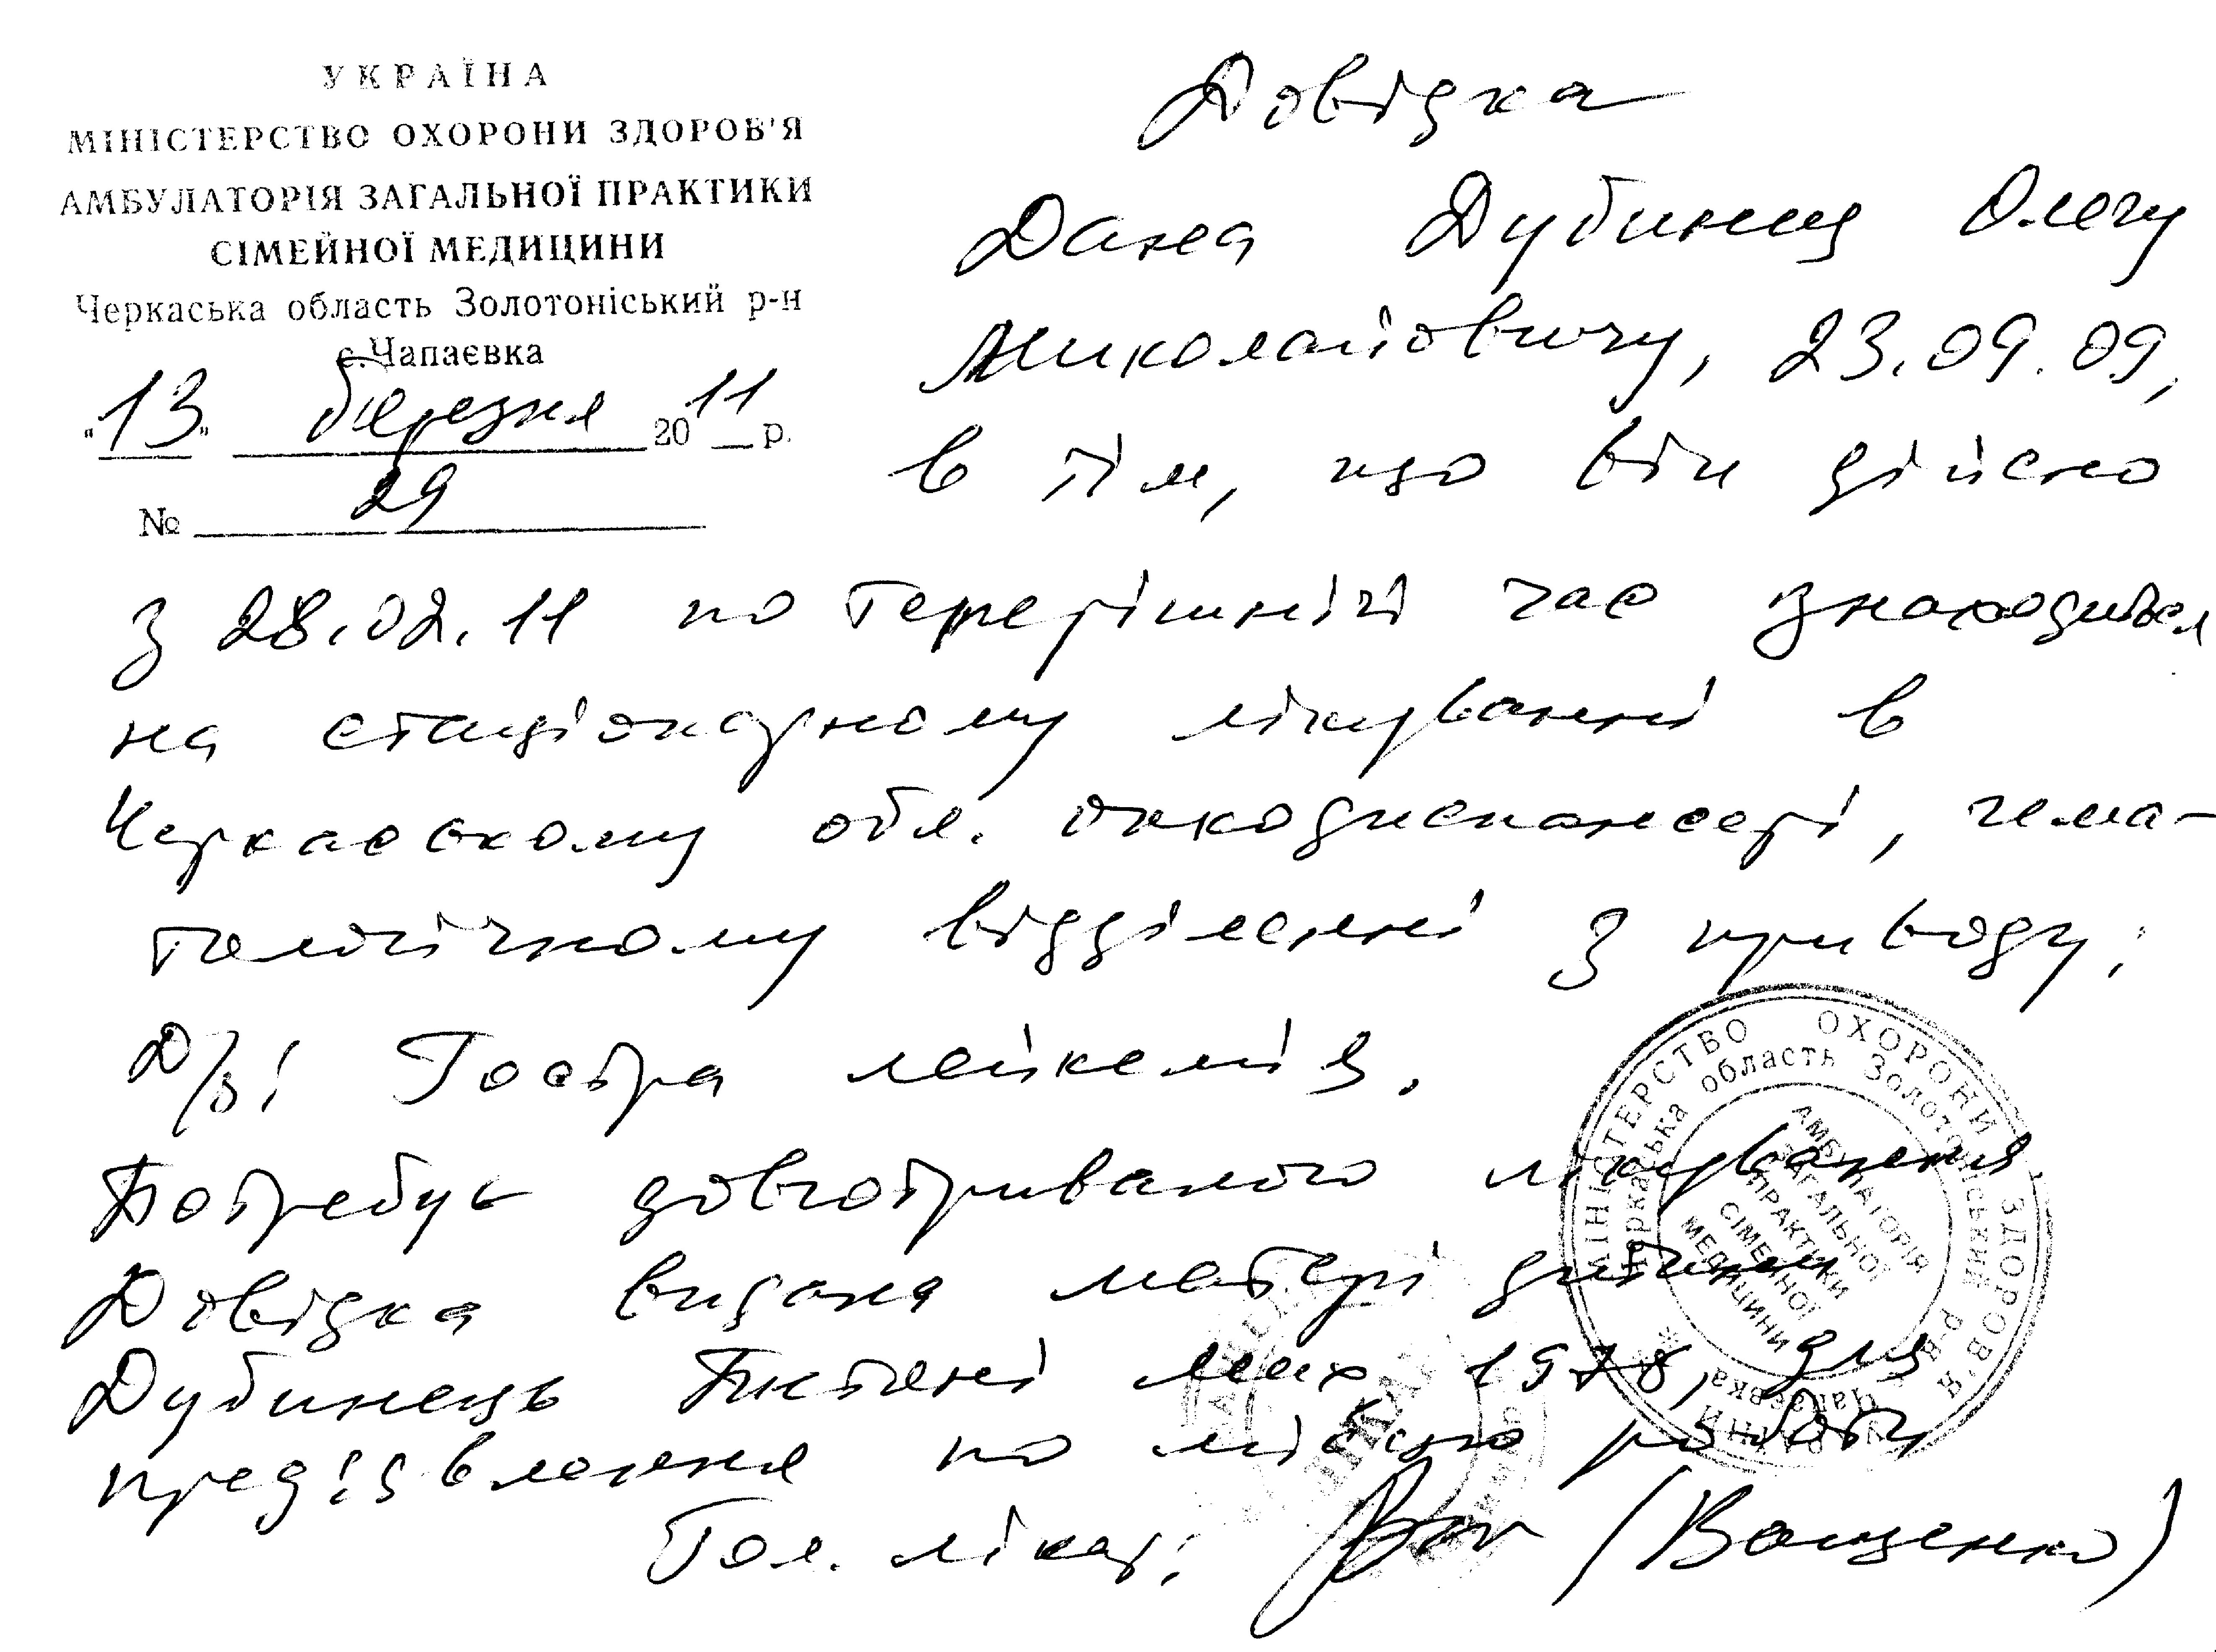 УКРАЇНА
МІНІСТЕРСТВО ОХОРОНИ ЗДОРОВ'Я
АМБУЛАТОРІЯ ЗАГАЛЬНОЇ ПРАКТИКИ
СІМЕЙНОЇ МЕДИЦИНИ
Черкаська область Золотоніський р-н
с. Чапаєвка
"13" березня 2011 р.
№ 29
Довідка
Дана Дубинец Олегу
Миколайовичу, 23.09.09,
в тім, що він дійсно
з 28.02.11 по теперішній час знаходиться
на стаціонарному лікуванні в
Черкаському обл. онкодиспансері, гема-
тологічному відділенні з приводу:
Д/з: Гостра лейкемія.
Потребує довготривалого лікування
Довідка видана матері дитини
Дубинець 1978, для
пред'явлення по місцю роботи
Гол. лікар: (Ващенко)
МІНІСТЕРСТВО ОХОРОНИ ЗДОРОВ'Я УКРАЇНИ
Черкаська область Золотоніський р-н с. Чапаєвка
АМБУЛАТОРІЯ
ЗАГАЛЬНОЇ
ПРАКТИКИ
СІМЕЙНОЇ
МЕДИЦИНИ